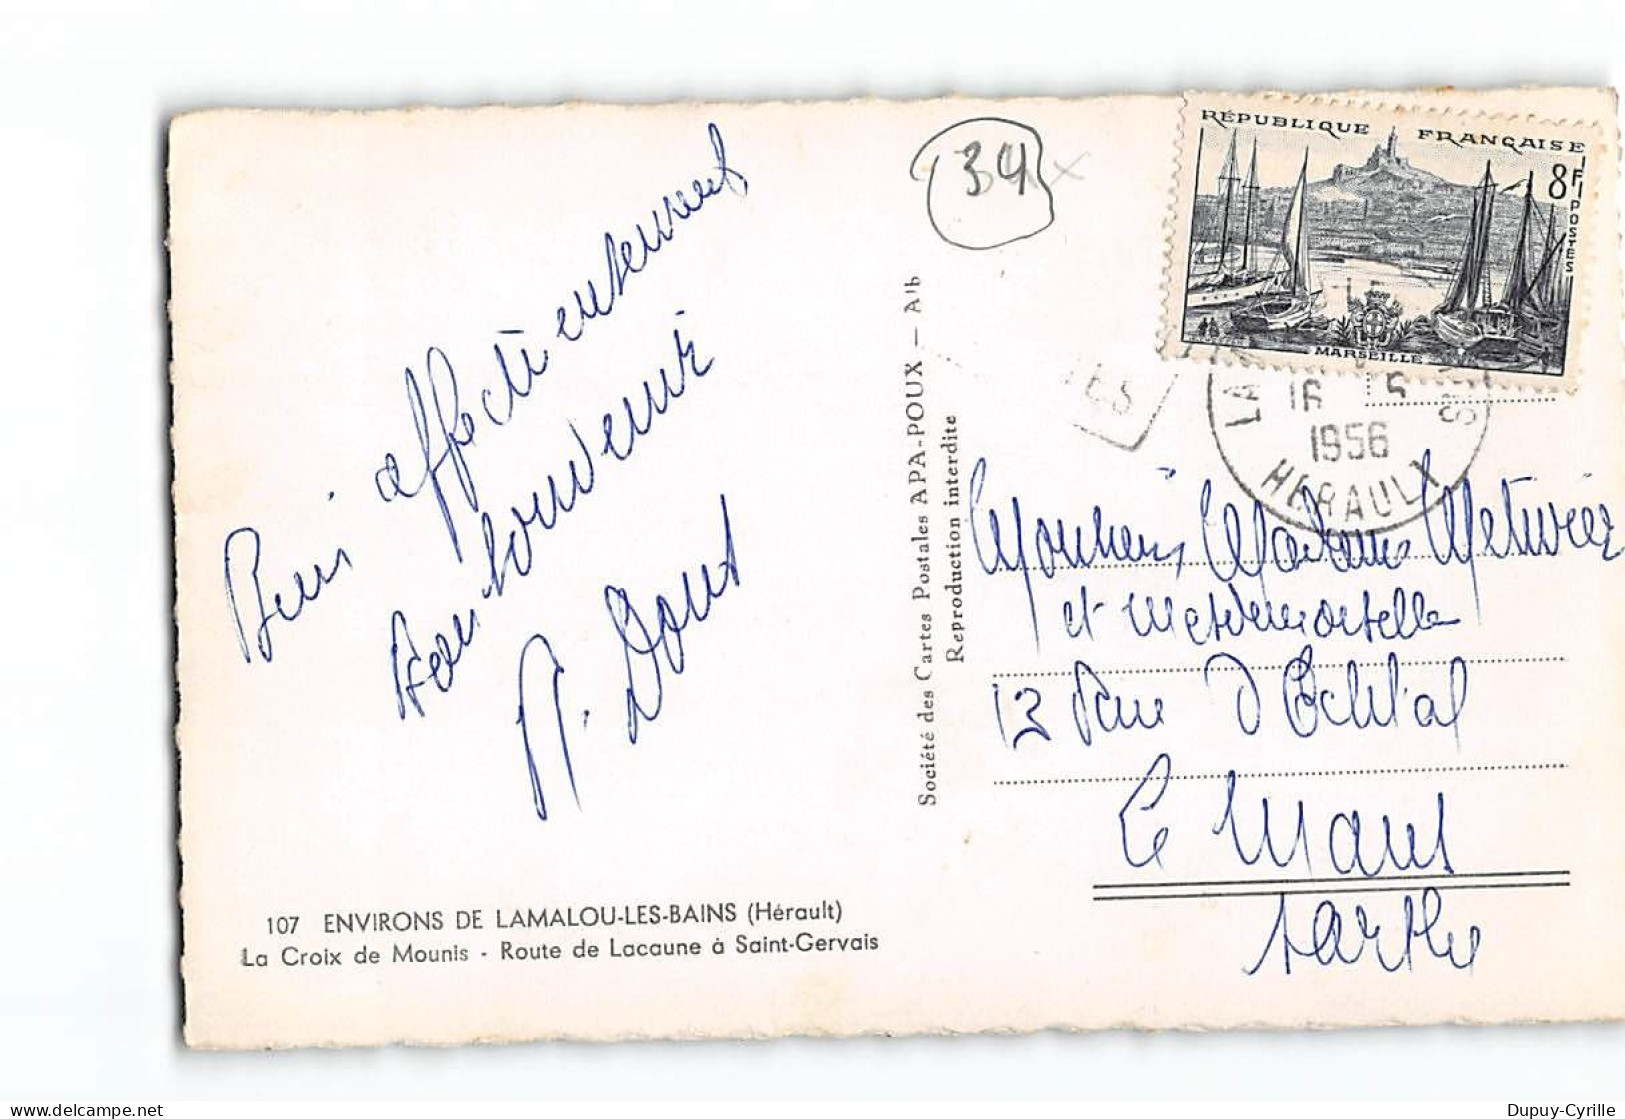 Bien affectueusement
bon souvenir
R. Dont
107 ENVIRONS DE LAMALOU-LES-BAINS (Hérault)
La Croix de Mounis - Route de Lacaune à Saint-Gervais
Société des Cartes Postales APA-POUX — Alb
Reproduction interdite
34
RÉPUBLIQUE FRANÇAISE
8F
POSTES
MARSEILLE
16 5
1956
HERAULT
Monsieur Madame Metivier
et Mesdemoiselles
12 Rue d'Eichtal
Le Mans
Sarthe
Dupuy-Cyrille